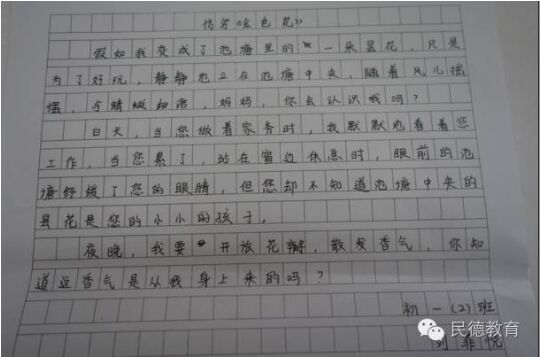 仿写《金色花》
假如我变成了池塘里的一朵昙花，只是
为了好玩，静静地立在池塘中央，随着风儿摇
摆，与蜻蜓细语，妈妈，你会认识我吗？
白天，当您做着家务时，我默默地看着您
工作，当您累了，站在窗边休息时，眼前的池
塘舒缓了您的眼睛，但您却不知道池塘中央的
昙花是您的小小的孩子。
夜晚，我要开放花瓣，散发香气，你知
道这香气是从我身上来的吗？
初一（2）班
刘菲悦
民德教育